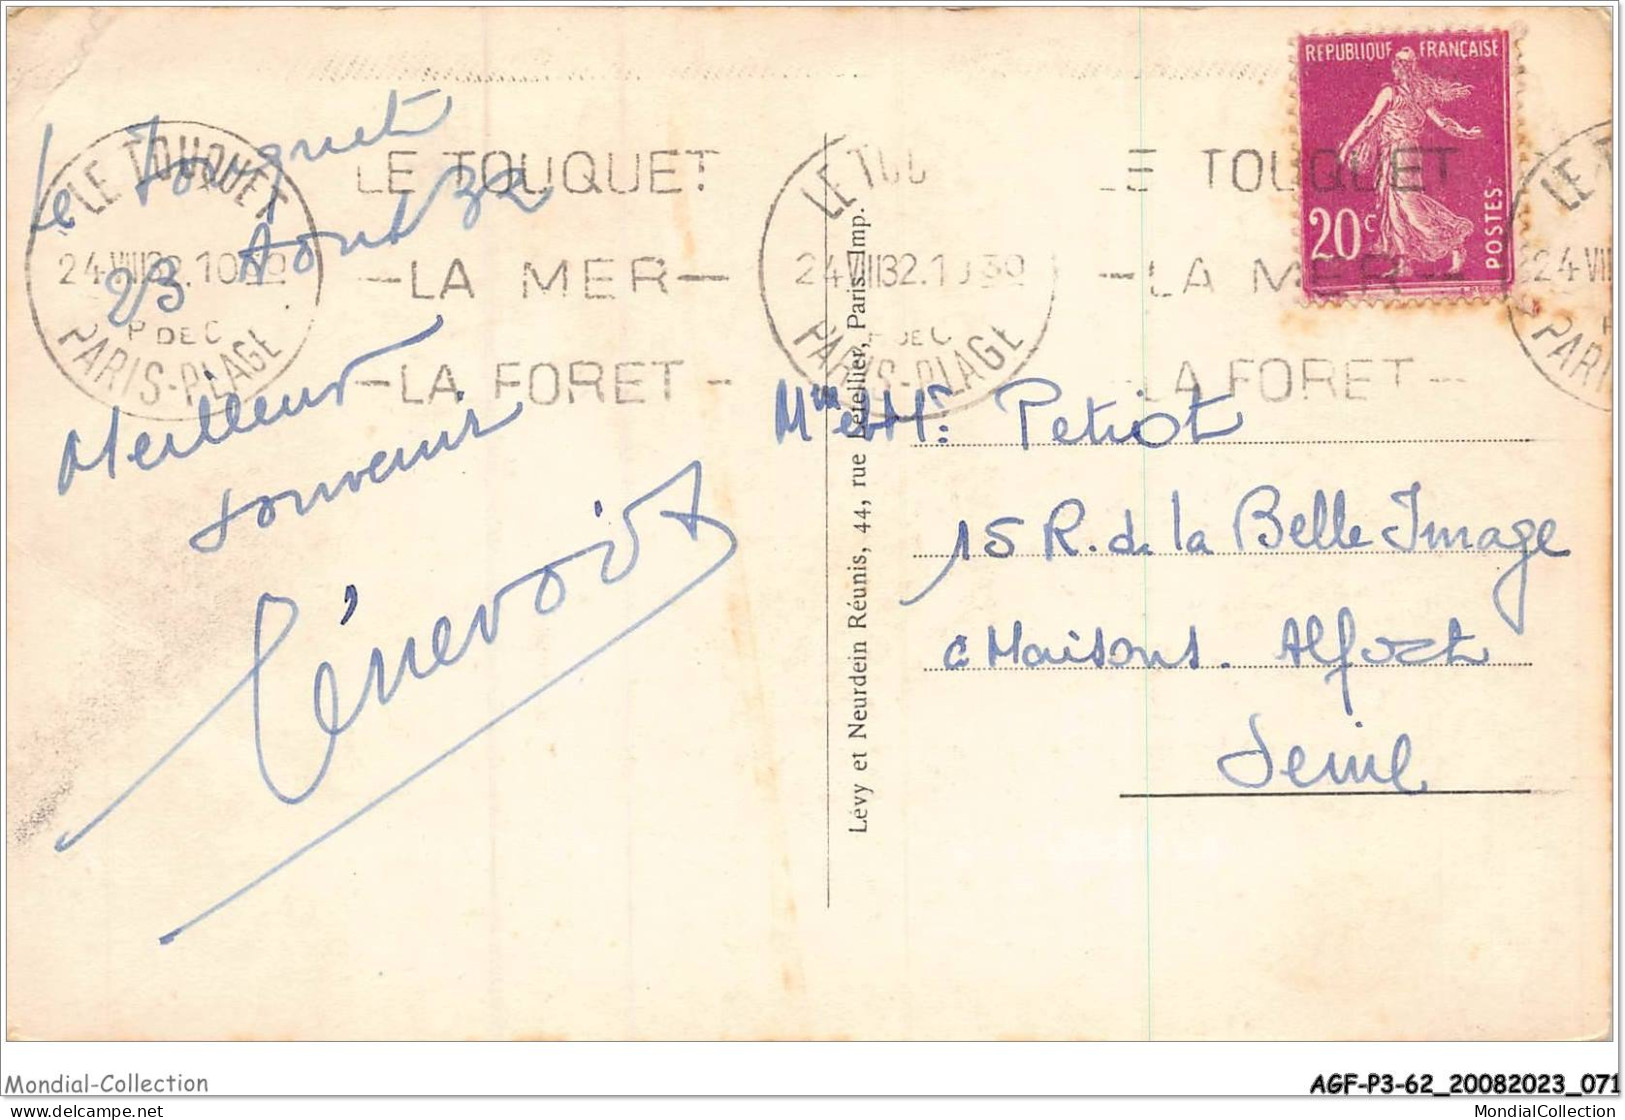 Le Touquet
23 Aout 32
Meilleur
souvenir
LE TOUQUET
24-VIII32.10
P DE C
PARIS-PLAGE
LE TOUQUET
—LA MER—
—LA FORET—
LE TOU
24-VIII32.1030
P DE C
PARIS-PLAGE
LE TOUQUET
—LA MER—
—LA FORET—
REPUBLIQUE FRANÇAISE
20c
POSTES
LE T
24-VIII
PARI
Lévy et Neurdein Réunis, 44, rue Letellier, Paris. Imp.
Mme et Mr: Petiot
15 R. de la Belle Image
a Maisons. Alfort
Seine
Mondial-Collection
AGF-P3-62_20082023_071
www.delcampe.net
MondialCollection